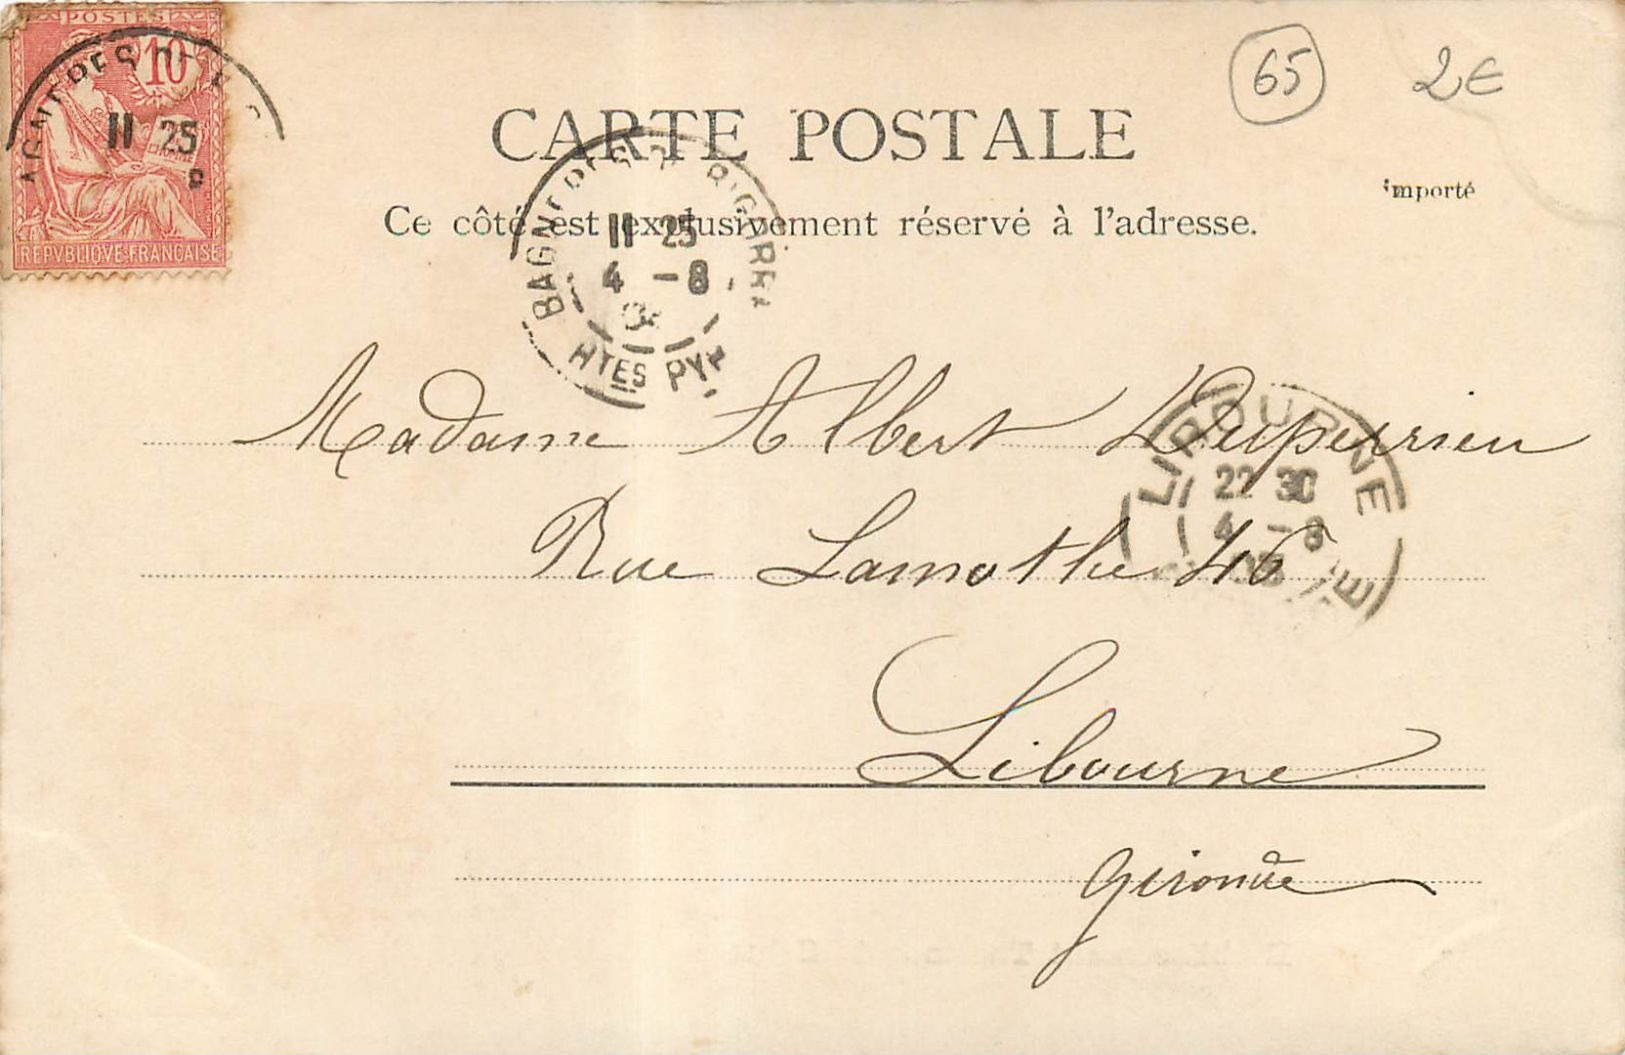 POSTES
10
REPVBLIQVE FRANÇAISE
11 25
65
2€
CARTE POSTALE
importé
Ce côté est exclusivement réservé à l'adresse.
BAGNERES DE BIGORRE
11 25
4 -8
HTES PYR
Madame Albert Duperrieu
LIBOURNE
22 30
4 -8
03
Rue Lamothe 46
Libourne
Gironde